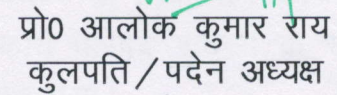 प्रो0 आलोक कुमार राय
कुलपति / पदेन अध्यक्ष